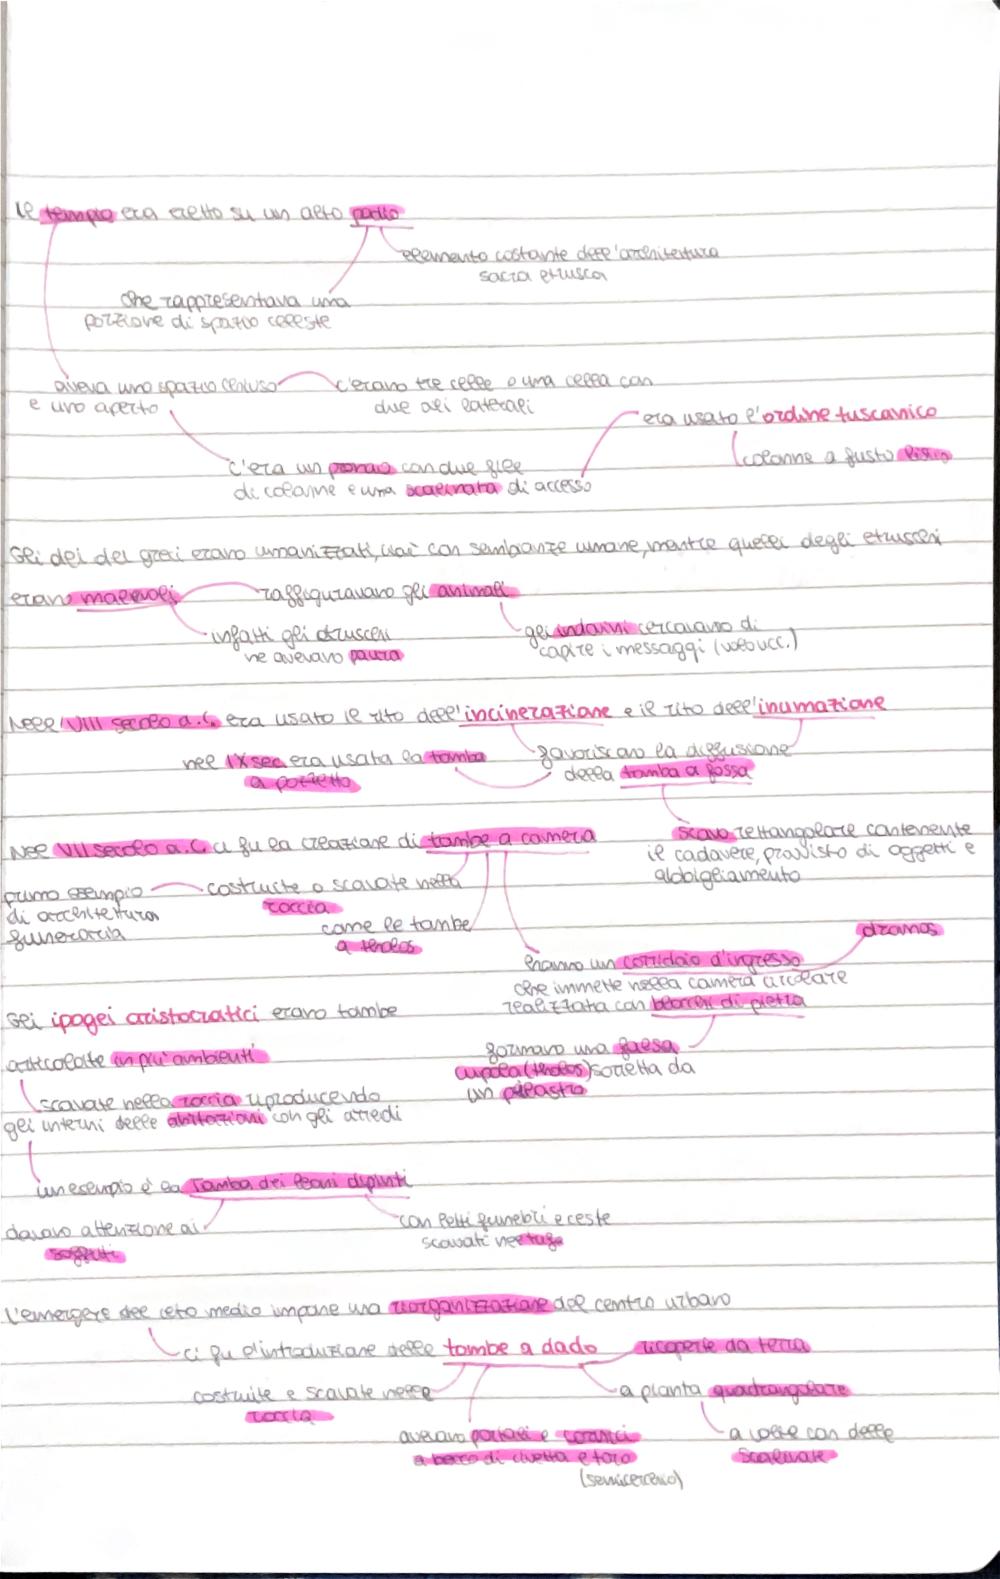 Il tempio era eretto su un alto podio
elemento costante dell'architettura
sacra etrusca
che rappresentava una
porzione di spazio celeste
Aveva uno spazio chiuso
e uno aperto
c'erano tre celle o una cella con
due ali laterali
era usato l'ordine tuscanico
colonne a fusto liscio
c'era un pronao con due file
di colonne e una scalinata di accesso
Gli dei dei greci erano umanizzati, cioè con sembianze umane, mentre quelli degli etruschi
erano malevoli
raffiguravano gli animali
infatti gli etruschi
ne avevano paura
gli indovini cercavano di
capire i messaggi (volo ucc.)
Nell'VIII secolo a.C. era usato il rito dell'incinerazione e il rito dell'inumazione
nel IX sec era usata la tomba
a pozzetto
favoriscono la diffusione
della tomba a fossa
scavo rettangolare contenente
il cadavere, provvisto di oggetti e
abbigliamento
Nel VII secolo a.C. ci fu la creazione di tombe a camera
primo esempio
di architettura
funeraria
costruite o scavate nella
roccia
come le tombe
a tholos
dromos
hanno un corridoio d'ingresso
che immette nella camera circolare
realizzata con blocchi di pietra
formano una falsa
cupola (tholos) sorretta da
un pilastro
Gli ipogei aristocratici erano tombe
articolate in più ambienti
scavate nella roccia riproducendo
gli interni delle abitazioni con gli arredi
un esempio è la Tomba dei leoni dipinti
davano attenzione ai
soffitti
con letti funebri e ceste
scavati nel tufo
L'emergere del ceto medio impone una riorganizzazione del centro urbano
ci fu l'introduzione delle tombe a dado
ricoperte da terra
costruite e scavate nelle
roccia
a pianta quadrangolare
a volte con delle
scalinate
avevano portali e cornici
a becco di civetta e toro
(semicerchio)